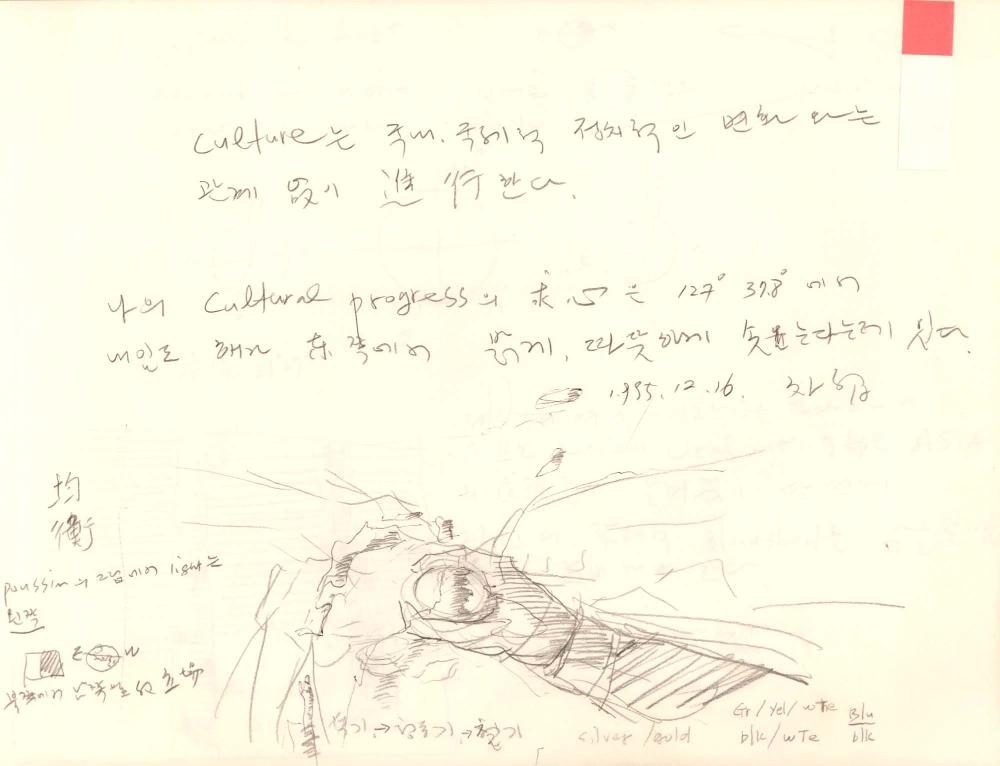 Culture는 국내.국제적 정치적인 변화와는
관계 없이 進行한다.
나의 Cultural progress의 求心은 127° 37.8°에서
내일도 해가 東쪽에서 밝게, 따뜻하게 솟는다는데 있다.
1995.12.16.
均
衡
poussin의 그림에서 light는
왼쪽
E W
북쪽에서 남쪽 立場
석기→청동기→철기
silver/gold
Gr/Yel/wTe
blk/wTe
Blu
blk